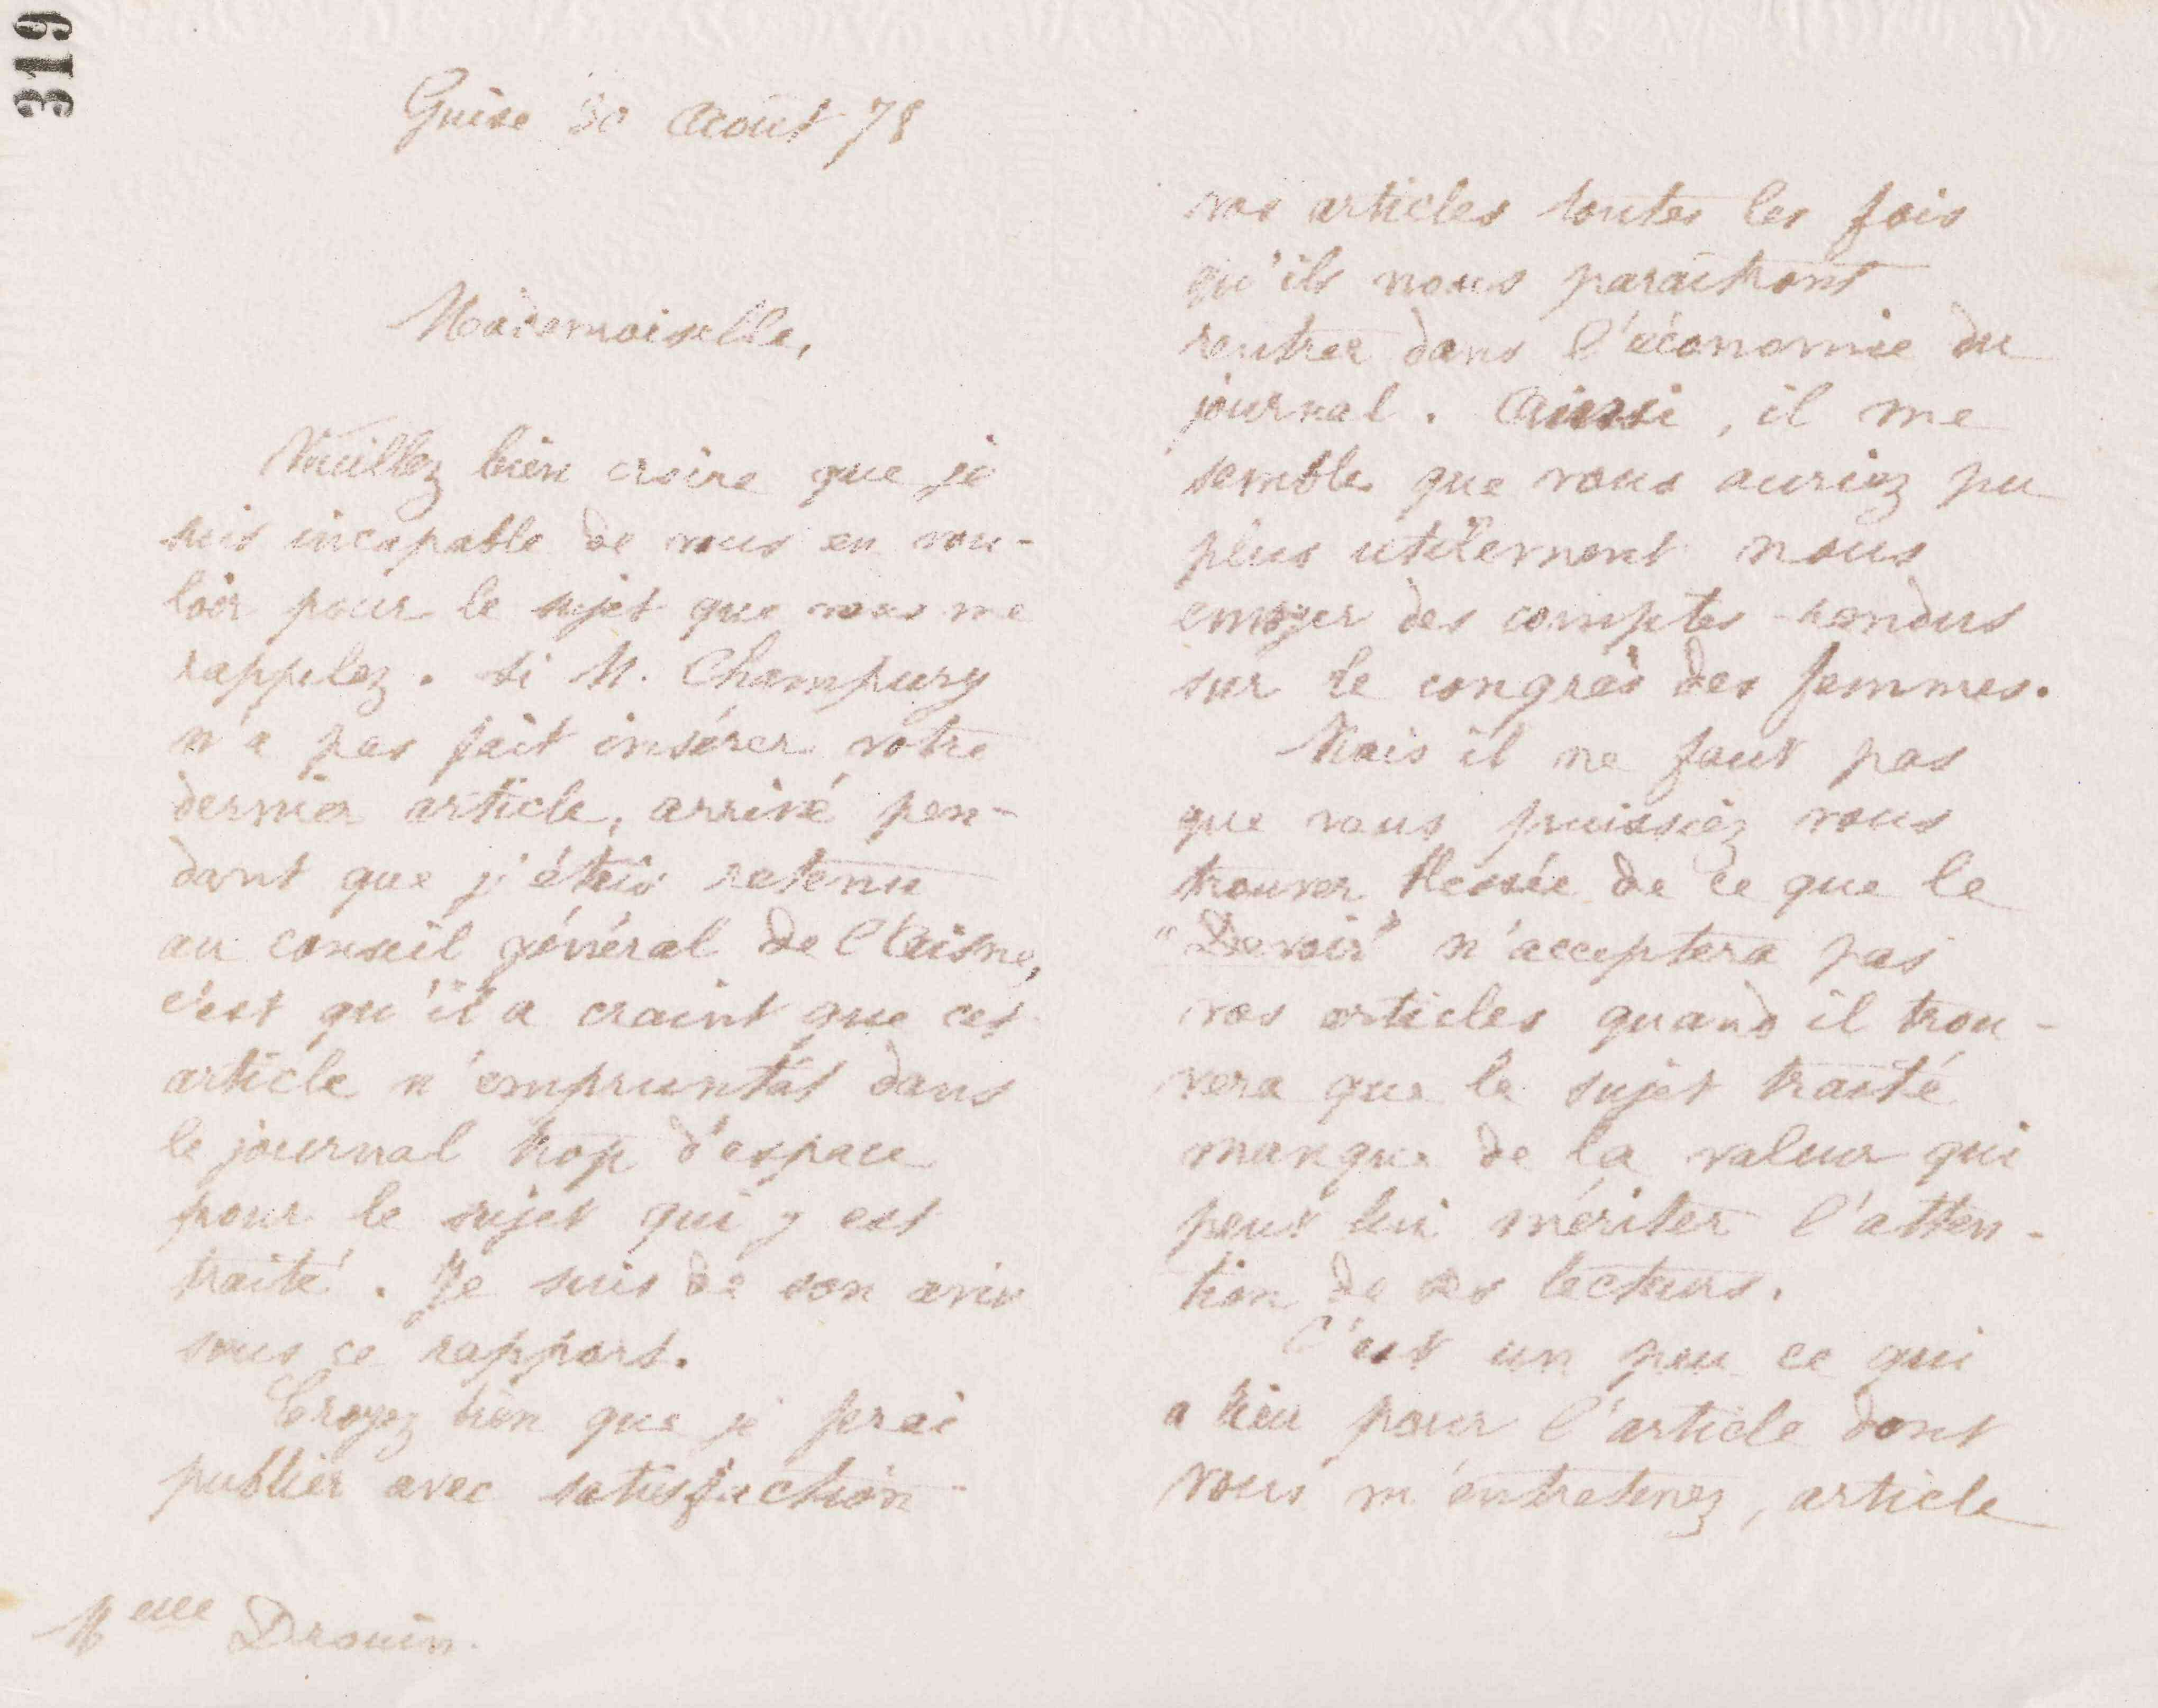 319
Guise 30 Août 78
Mademoiselle,
Veuillez bien croire que je
suis incapable de vous en vou-
loir pour le sujet que vous me
rappelez. Si M. Champury
n'a pas fait insérer votre
dernier article, arrivé pen-
dant que j'étais retenu
au conseil général de l'Aisne,
c'est qu'il a craint que cet
article n'empruntât dans
le journal trop d'espace
pour le sujet qui y est
traité. Je suis de son avis
sous ce rapport.
Croyez bien que je ferai
publier avec satisfaction
Melle Drouin.
vos articles toutes les fois
qu'ils nous paraîtront
rentrer dans l'économie du
journal. Ainsi, il me
semble que vous auriez pu
plus utilement nous
envoyer des comptes-rendus
sur le congrès des femmes.
Mais il ne faut pas
que vous puissiez vous
trouver blessée de ce que le
"Devoir" n'acceptera pas
vos articles quand il trou-
vera que le sujet traité
manque de la valeur qui
peut lui mériter l'atten-
tion de ses lecteurs.
C'est un peu ce qui
a lieu pour l'article dont
vous m'entretenez, article